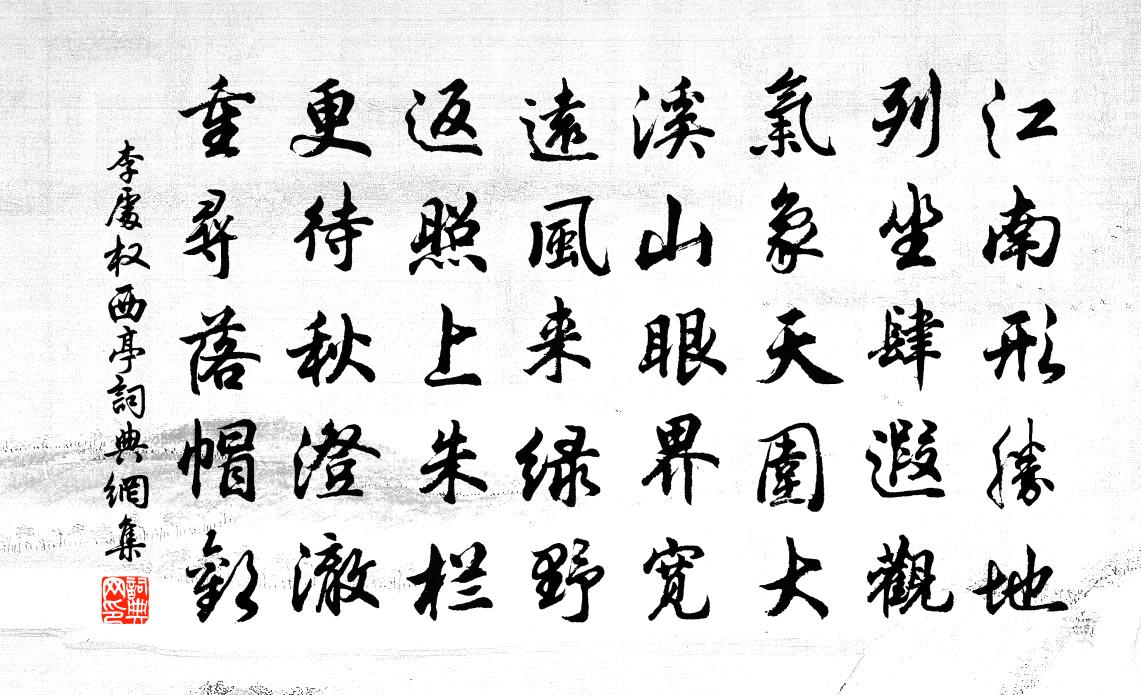 江南形勝地
列坐肆遐觀
氣象天圍大
溪山眼界寬
遠風来绿野
返照上朱栏
更待秋澄澈
重尋落帽歡
李處权西亭詞典網集
詞典网印